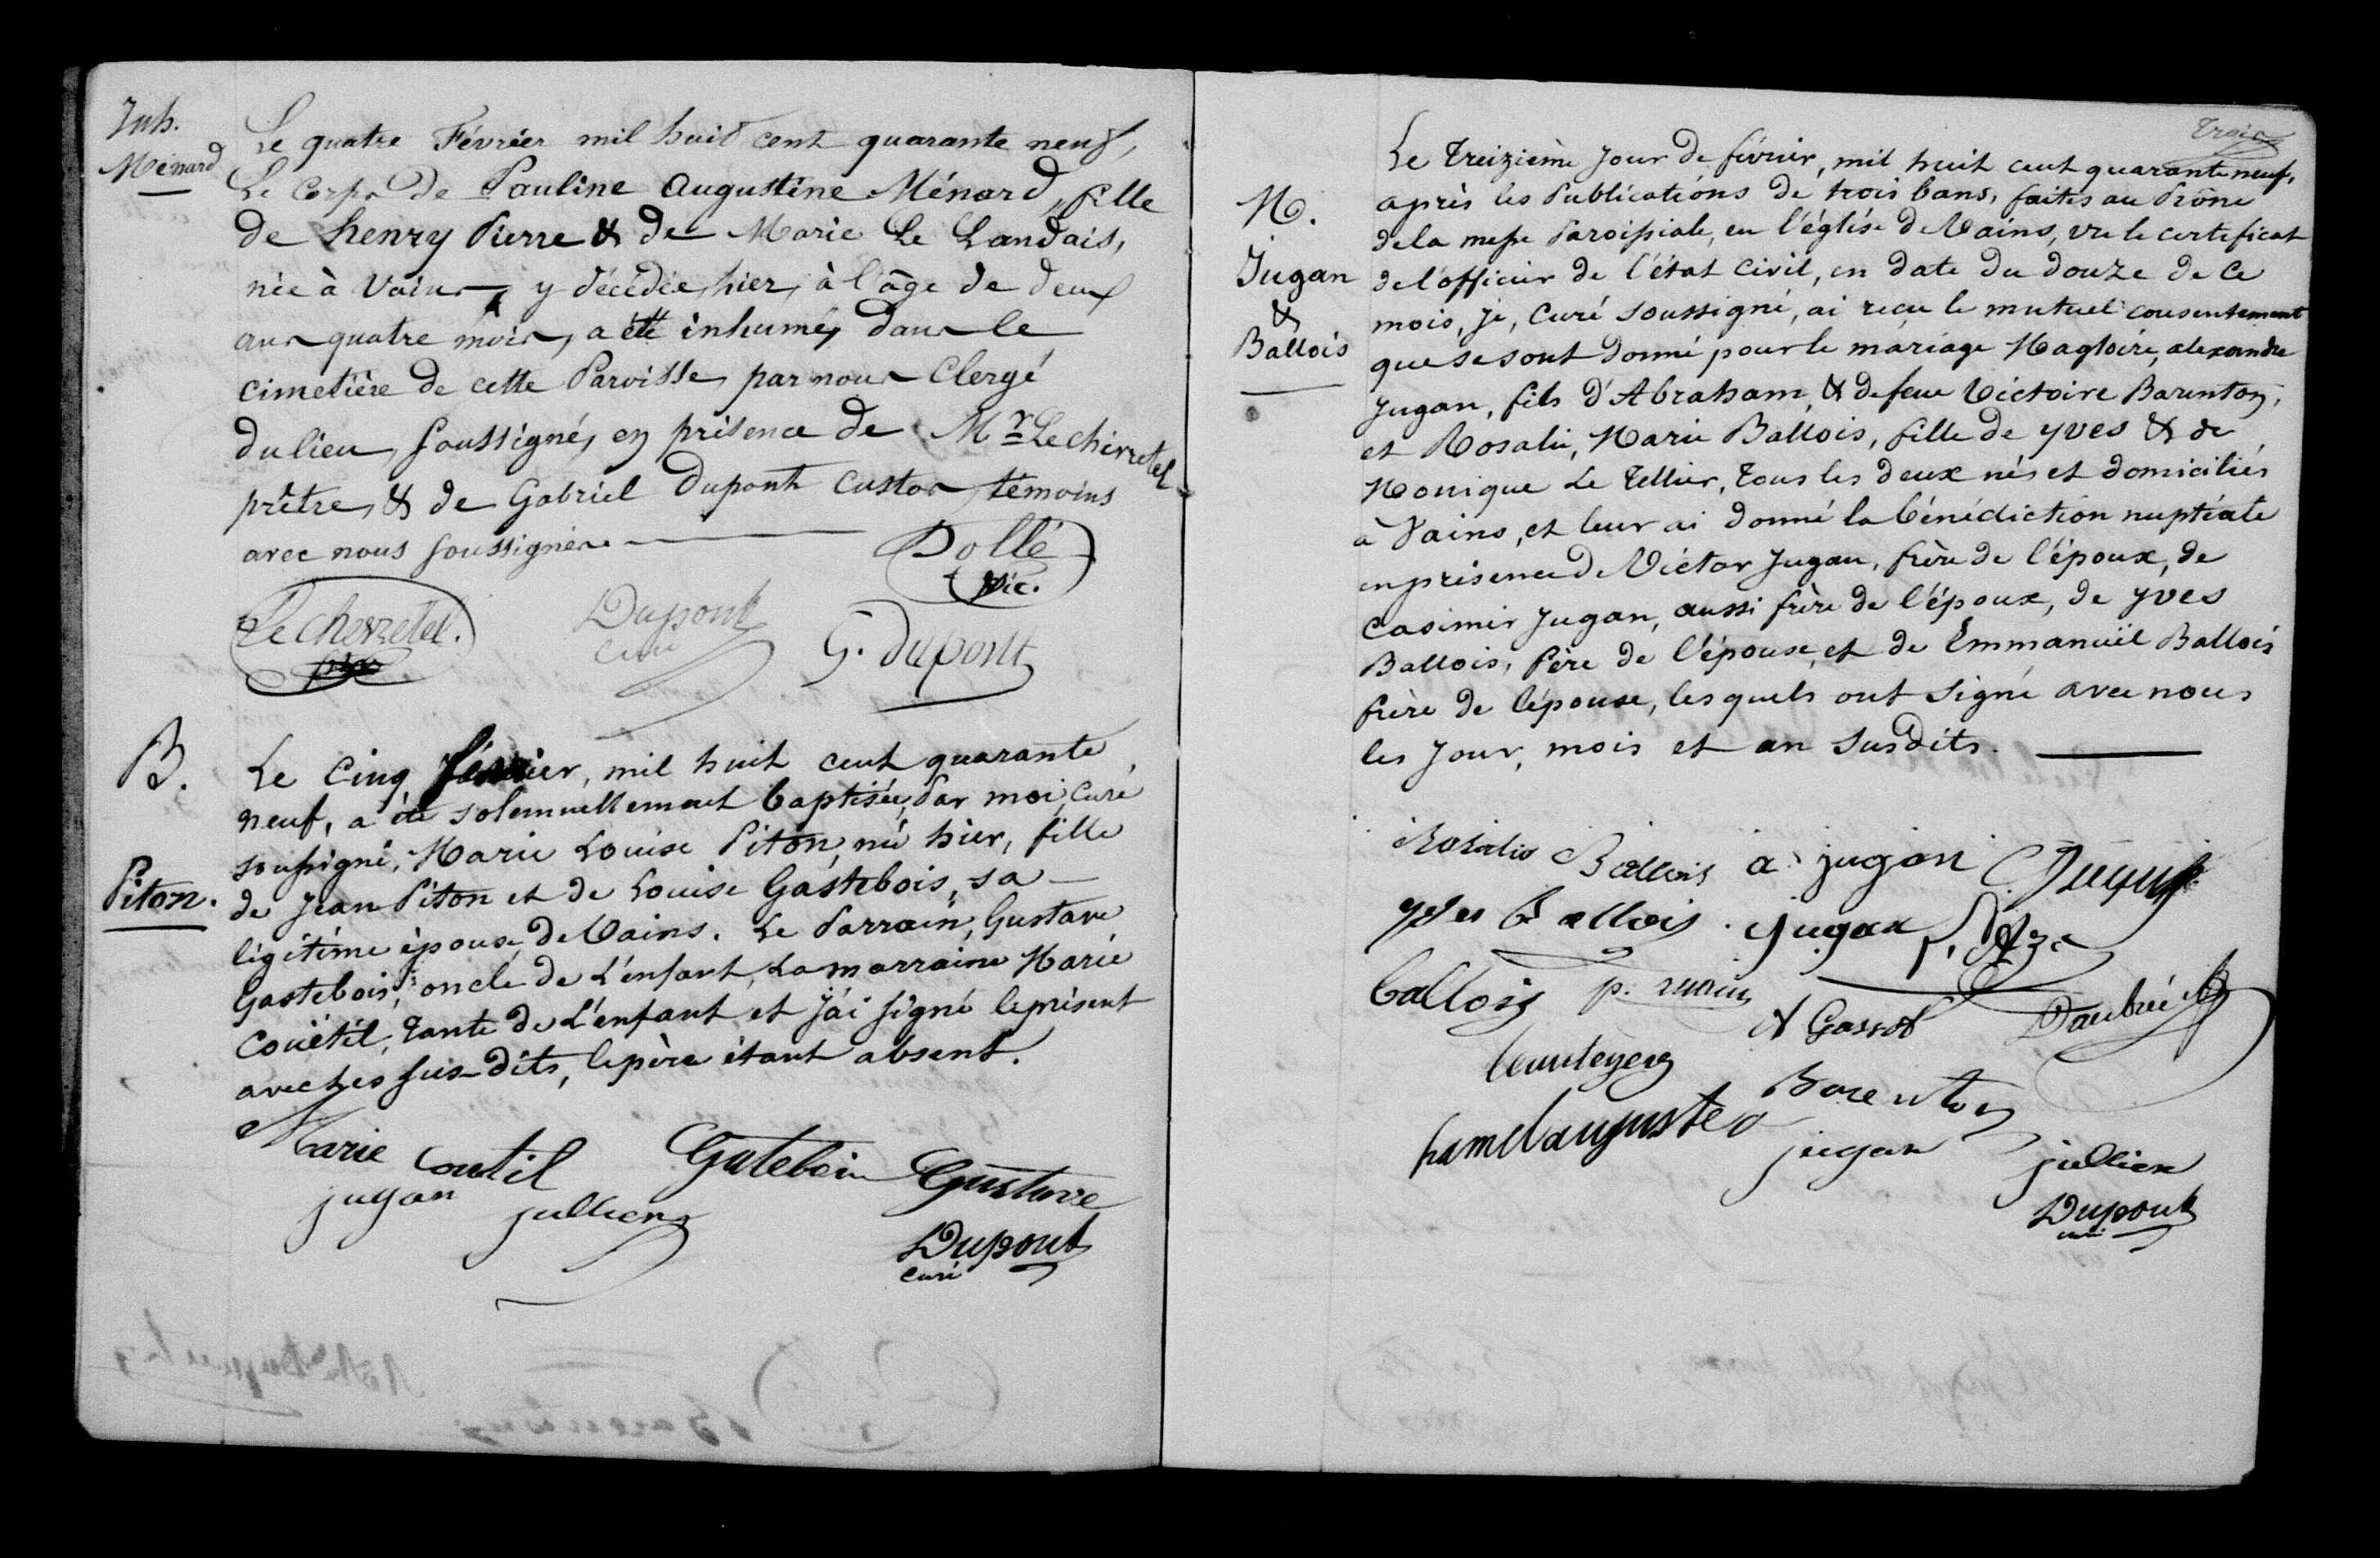 Inh.
Ménard
Le quatre Février mil huit cent quarante neuf,
Le Corps de Pauline Augustine Ménard, fille
de henry Pierre & de Marie Le Landais,
née à Vains, y décédée, hier, à l'âge de deux
ans quatre mois, a été inhumé, dans le
cimetière de cette Paroisse, par nous Clergé
du lieu, soussigné, en présence de Mr Lecherretel
prêtre, & de Gabriel Dupont custos, témoins
avec nous soussignés.
Dollé
vic.
Lecherretel.
ptre
Dupont
Curé
G. dupont
B.
Piton.
Le Cinq février, mil huit cent quarante
neuf, a été solemnellement baptisée, par moi, curé
soussigné, Marie Louise Piton, née hier, fille
de Jean Piton et de Louise Gastebois, sa
légitime épouse, de Vains. Le Parrain, Gustave
Gastebois, oncle de L'enfant, La marraine Marie
Couëtil, tante de L'enfant et j'ai signé le présent
avec les sus-dits, le père étant absent.
Marie Coutil Gatebois Gustave
jugan jullien
Dupont
curé
Trois
M.
Jugan
&
Ballois
Le treizième jour de février, mil huit cent quarante neuf,
après les Publications de trois bans, faites au Prône
de la messe Paroissiale, en l'église de Vains, vu le certificat
de l'officier de l'état civil, en date du douze de ce
mois, je, curé soussigné, ai reçu le mutuel consentement
que se sont donné pour le mariage Magloire, alexandre
Jugan, fils d'Abraham, & de feue Victoire Barenton,
et Rosalie, Marie Ballois, fille de yves & de
Monique Le Tellier, tous les deux nés et domiciliés
à Vains, et leur ai donné la bénédiction nuptiale
en présence de Victor Jugan, frère de l'époux, de
Casimir Jugan, aussi frère de l'époux, de yves
Ballois, Père de l'épouse, et de Emmanuël Ballois
frère de l'épouse, lesquels ont signé avec nous
les jour, mois et an susdits.
Rosalie Ballois a jugan
yves Ballois jugan
ballois
A Gassot Daubrée
Barenton
hamel auguste jugan jullien
Dupont
curé